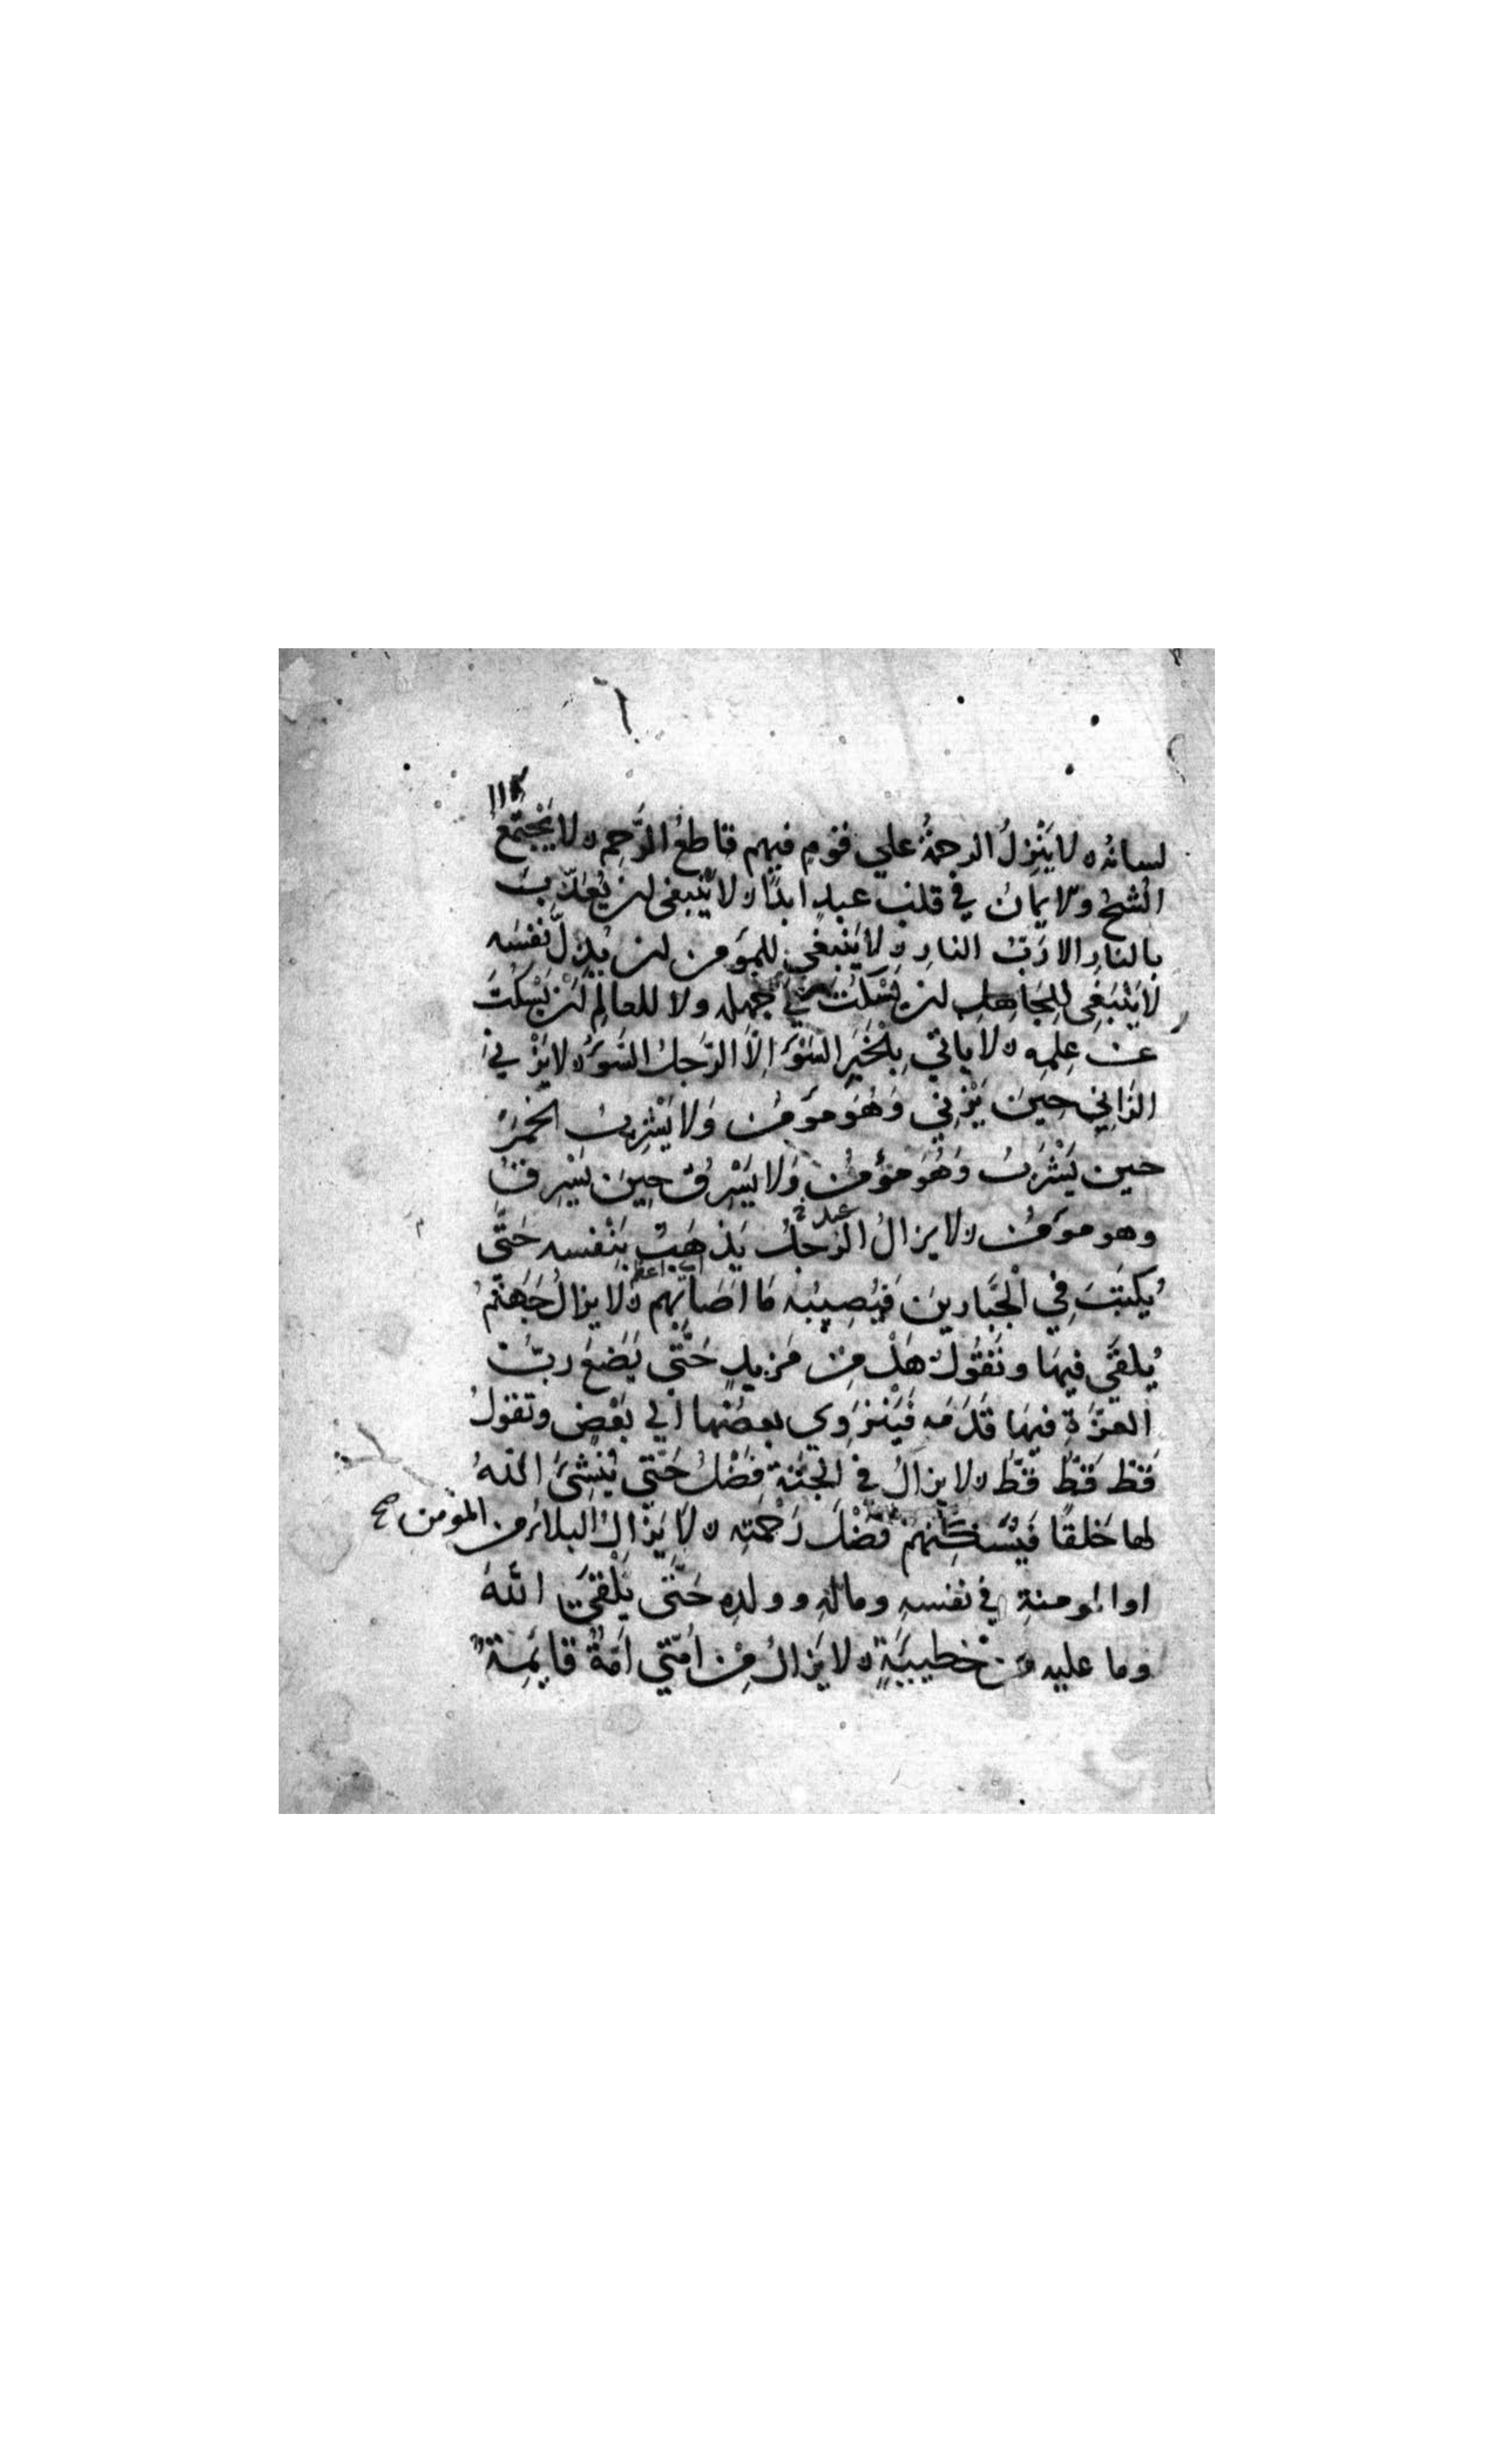 ١١٢
لسانه ه لا يَنْزِلُ الرحمةُ علي قومٍ فيهم قاطعُ الرَّحِمِ ه لا يَجْتَمِعُ
الشح ولايمان في قلب عبدٍ ابدًا ه لا يَنْبغى لمن يُعَذِّبَ
بالنار الا رَبُّ النارِ ه لا يَنْبغي للمؤمن ان يُذِلَّ نفسَه
لا يَنْبَغِى لِلجَاهلِ ان يَسْكُتَ علي جهله ولا للعالِمِ ان يَسْكُتَ
عن عِلمِه ه لا ياتي بِالْخَبَرِ السَّوءِ اِلَّا الرَّجلُ السَّوءُ ه لا يَزْنِي
الزَانِي حِينَ يَزْنِي وَهُوَ مؤمِنٌ وَلا يَشْرِبُ الخمرَ
حين يَشْرَبُ وَهُوَ مُؤمنٌ وَلا يَسْرِقُ حِينَ يَسْرِقُ
وهو مؤمنٌ ه لا يزالُ الرَّجلُ يَذهَبُ بِنَفْسِه حَتَّى
عبد
يُكتَبَ فِي الْجَبَّارِينَ فَيُصِيبُه مَا اَصَابَهُم ه لا يزالُ جَهَنَّمُ
يُلقَى فِيهَا وتَقُولُ هَلْ مِنْ مَزيدٍ حَتَّى يَضَعَ رَبُّ
العِزَّةِ فيهَا قَدَمَه فَيَنْزَوِي بعضُها الي بَعْضٍ وتقولُ
قَطْ قَطْ قَطْ ه لا يزالُ في الجَنَّةِ فَضْلٌ حَتَّى يُنْشِئَ اللهُ
لها خَلقًا فَيُسْكِنهُمْ فَضْلَ رَحْمَتِه ه لا يَزالُ البلاءُ من المؤمن صح
او المومنةِ في نفسهِ ومالهِ وولدهِ حَتَّى يَلْقَى اللهَ
وما عليه مِن خطيئَةٍ ه لا يَزالُ مِنْ اُمَّتِي اُمَّةٌ قايِمَةٌ